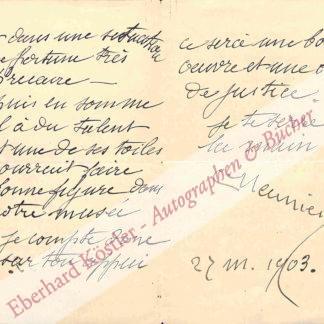 dans une situation
fortune très
précaire —
puis en somme
il a du talent
et une de ses toiles
pourrait faire
bonne figure dans
votre musée
je compte donc
sur ton appui
ce sera une bo
oeuvre et une o
de justice
je te serre
la main
Meunier
27 m. 1903.
Eberhard Köstler - Autographen & Bücher